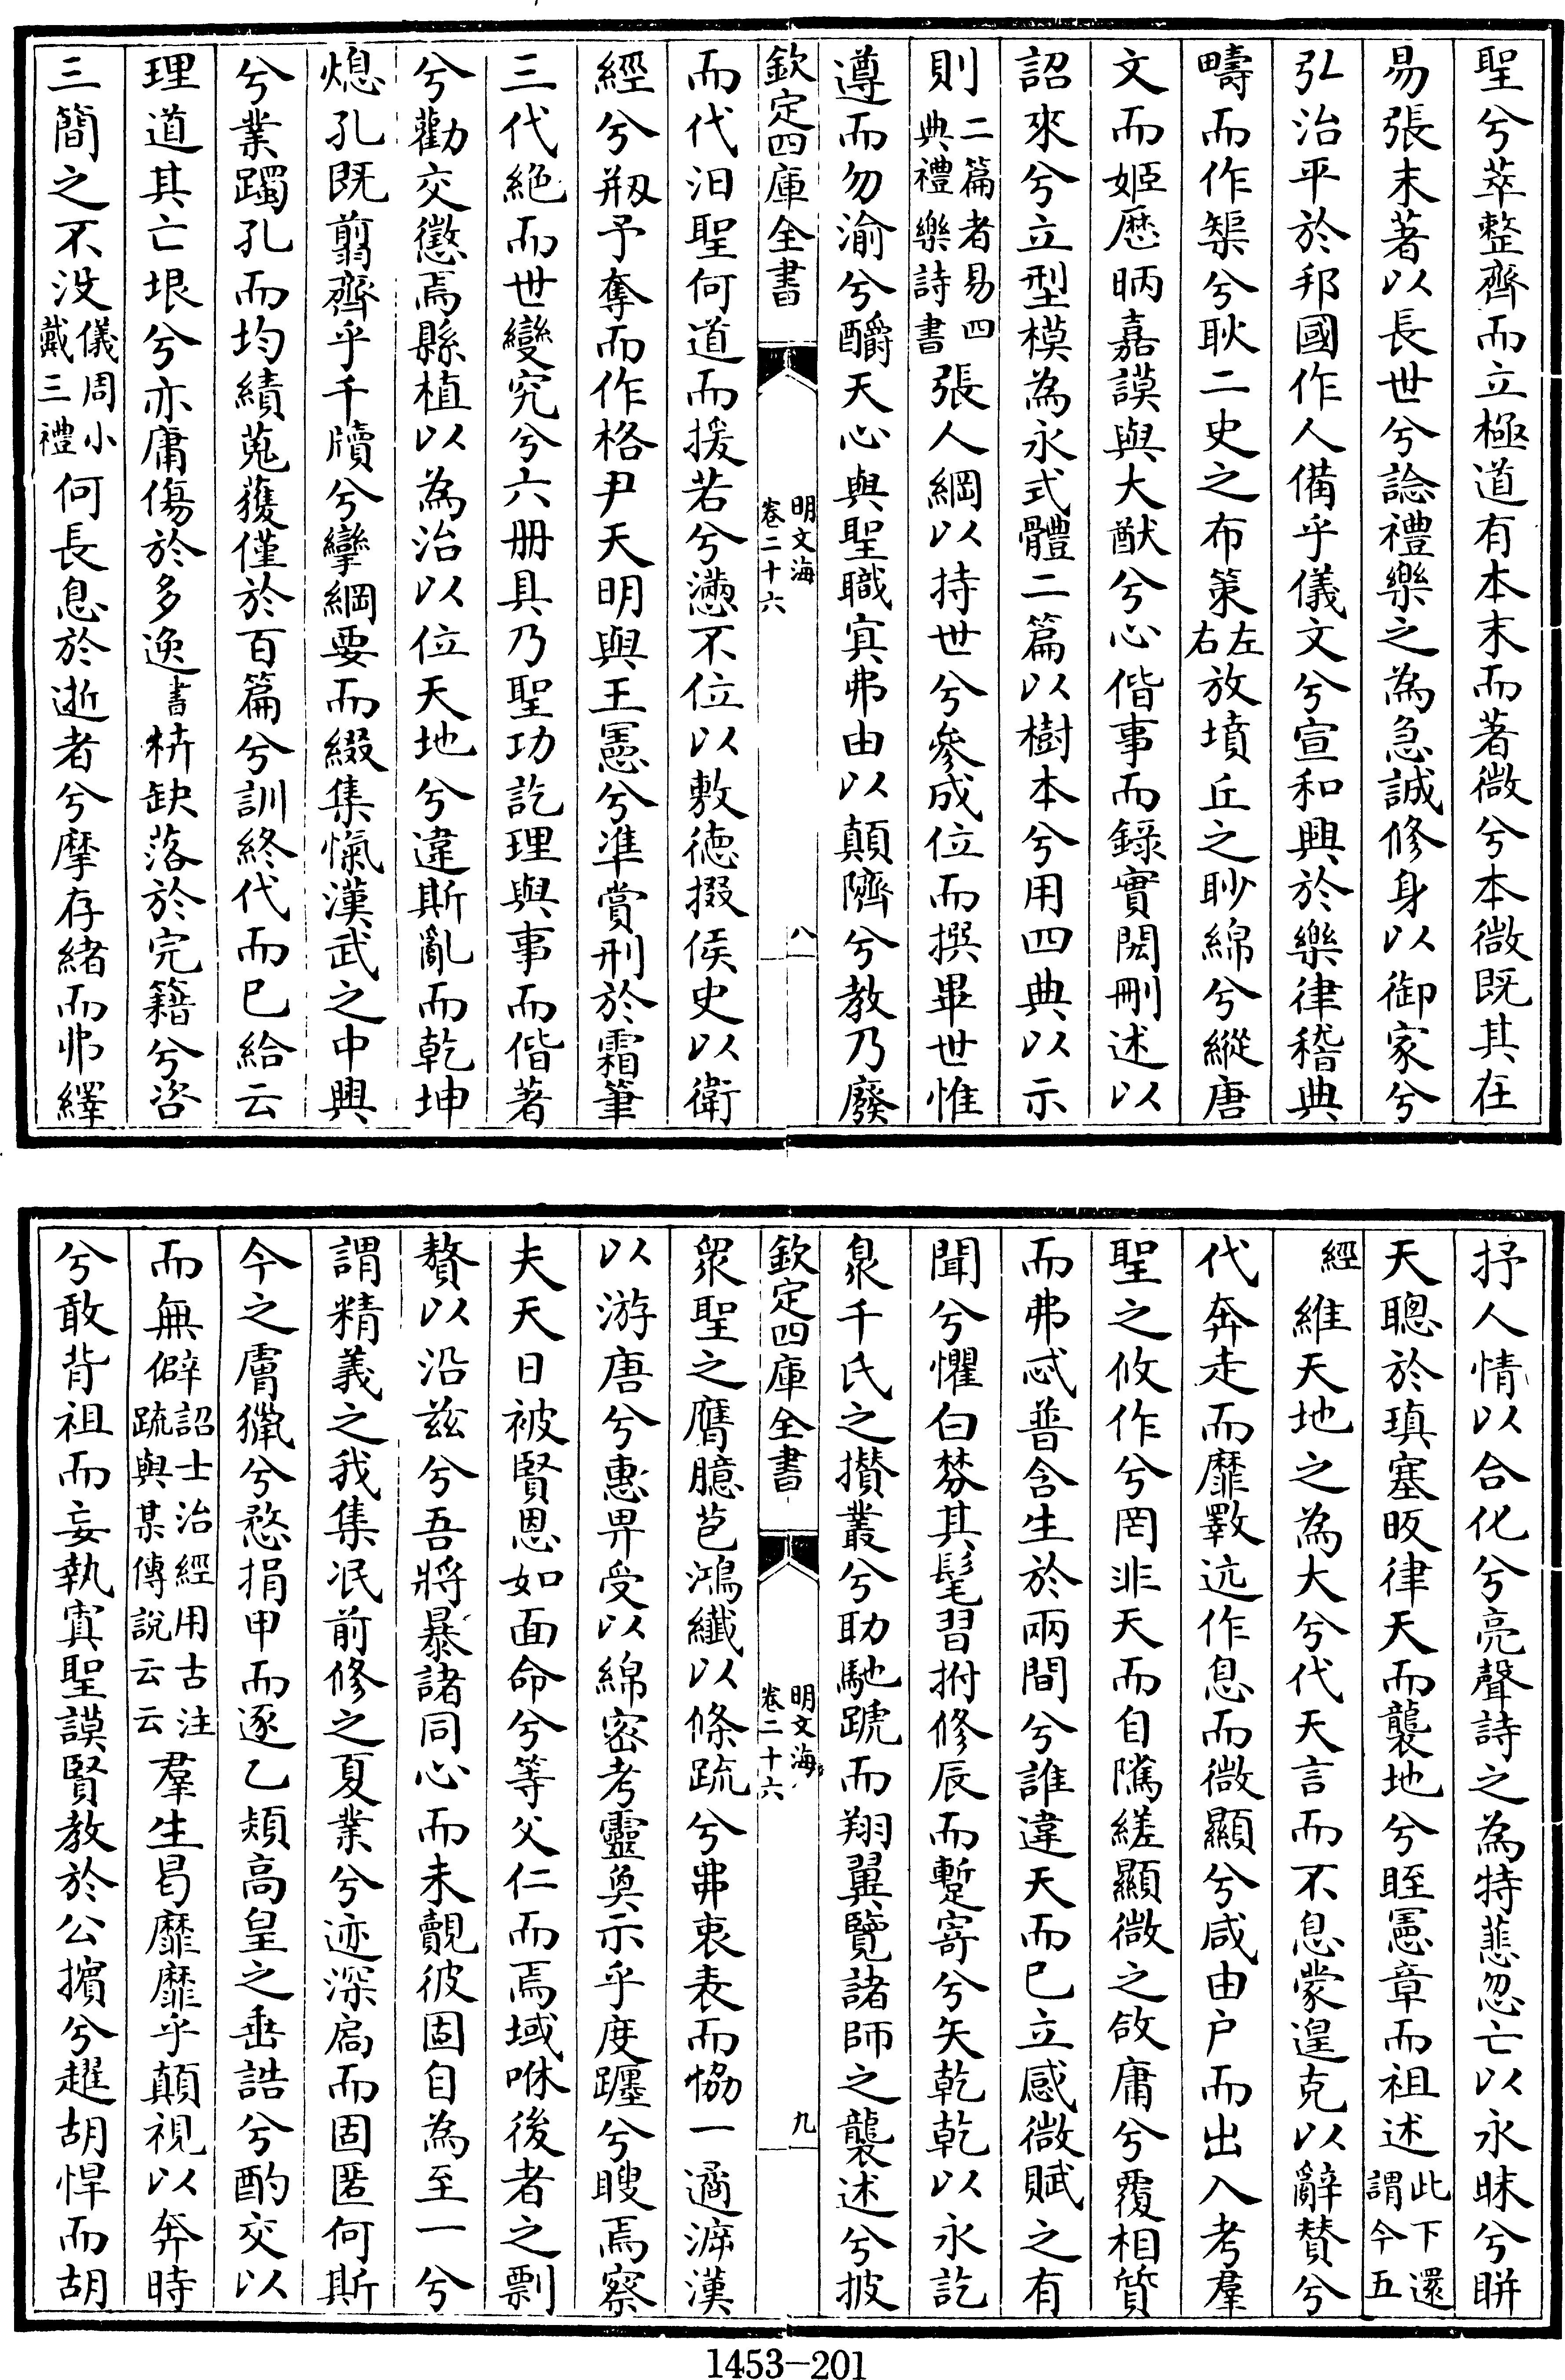 聖兮萃整齊而立極道有本末而著微兮本微既其在
易張末著以長世兮諗禮樂之為急誠修身以御家兮
弘治平於邦國作人備乎儀文兮宣和興於樂律稽典
疇而作榘兮耿二史之布策左右放墳丘之眇綿兮縱唐
文而姬歴昞嘉謨與大猷兮心偕事而錄實閎刪述以
詔來兮立型模為永式體二篇以樹本兮用四典以示
則二篇者易四典禮樂詩書張人綱以持世兮參成位而撰畢世惟
遵而勿渝兮酹天心與聖職寘弗由以顛隮兮教乃廢
欽定四庫全書
明文海
卷二十六
八
而代汨聖何道而援若兮懣不位以敷徳掇侯史以衛
經兮剏予奪而作格尹天明與王憲兮準賞刑於霜筆
三代絶而世變究兮六册具乃聖功訖理與事而偕著
兮勸交懲焉縣植以為治以位天地兮違斯亂而乾坤
熄孔既翦齊乎千牘兮攣綱要而綴集愾漢武之中興
兮業躅孔而均績蒐獲僅於百篇兮訓終代而已給云
理道其亡垠兮亦庸傷於多逸書栟缺落於完籍兮咨
三簡之不没儀周小戴三禮何長息於逝者兮摩存緒而弗繹
抒人情以合化兮亮聲詩之為特蒠忽亡以永昧兮眫
天聰於瑱塞昄律天而襲地兮眰憲章而祖述此下還謂今五
經維天地之為大兮代天言而不息蒙遑克以辭賛兮
代奔走而靡斁远作息而微顯兮咸由户而出入考羣
聖之攸作兮罔非天而自隲縒顯微之敆庸兮覆相質
而弗忒普含生於兩間兮誰違天而已立感微賦之有
聞兮懼白棼其髦習拊修辰而蹔寄兮矢乾乾以永訖
泉千氏之攢叢兮助馳虒而翔翼覽諸師之襲述兮披
欽定四庫全書
明文海
卷二十六
九
衆聖之膺臆芭鴻纎以條疏兮弗衷表而恊一適滓漢
以游唐兮惠畀受以綿宻考靈奥示乎度躔兮瞍焉察
夫天日被賢恩如面命兮等父仁而焉域咻後者之剽
贅以沿兹兮吾將暴諸同心而未覿彼固自為至一兮
謂精義之我集泯前修之夏業兮迹深扃而固匿何斯
今之膚獵兮愗捐甲而逐乙頍高皇之垂誥兮酌交以
而無僻詔士治經用古注疏與某傳說云云羣生曷靡靡乎顛視以奔時
兮敢背祖而妄執寘聖謨賢教於公擯兮趯胡悍而胡
1453—201